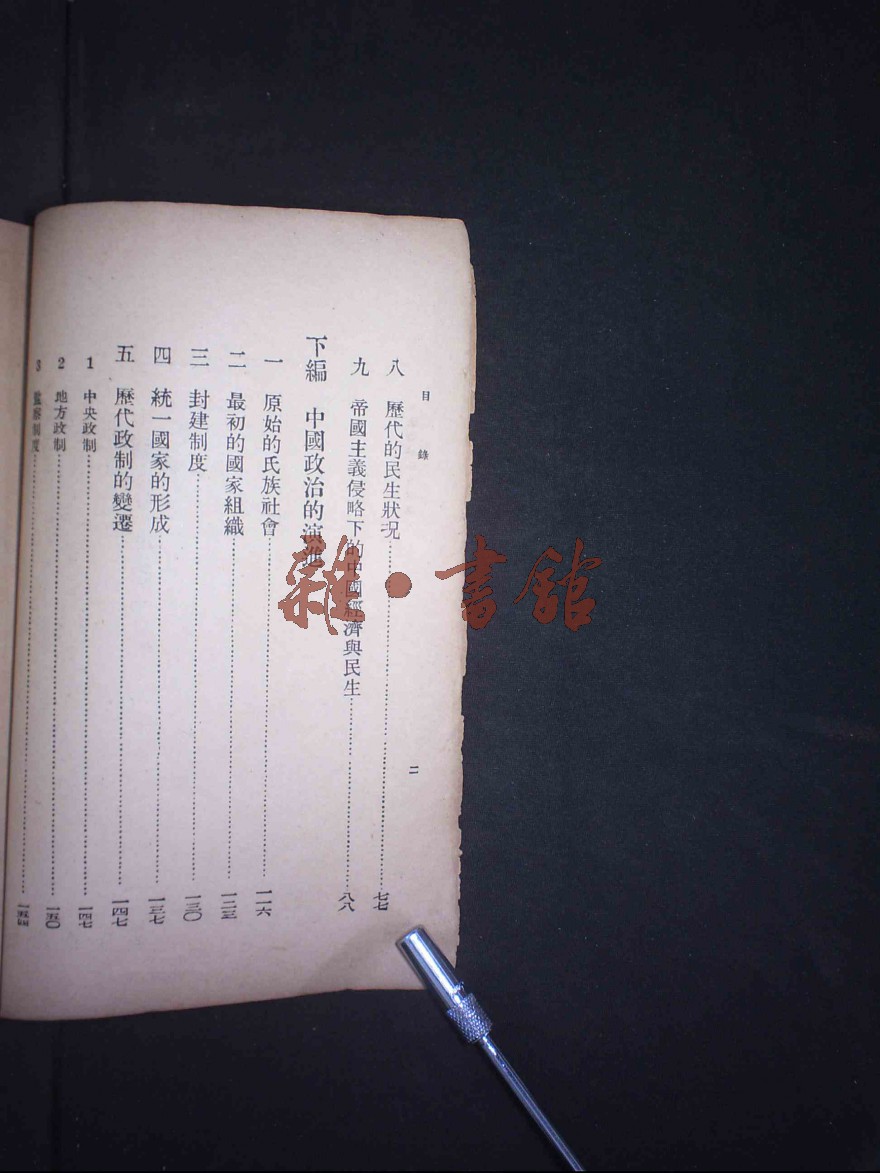 目錄
二
八 歷代的民生狀況……七七
九 帝國主義侵略下的中國經濟與民生……八八
下編 中國政治的演進
一 原始的氏族社會……一一六
二 最初的國家組織……一二三
三 封建制度……一三〇
四 統一國家的形成……一三七
五 歷代政制的變遷……一四七
1 中央政制……一四七
2 地方政制……一五〇
3 監察制度……一五四
雜·書館